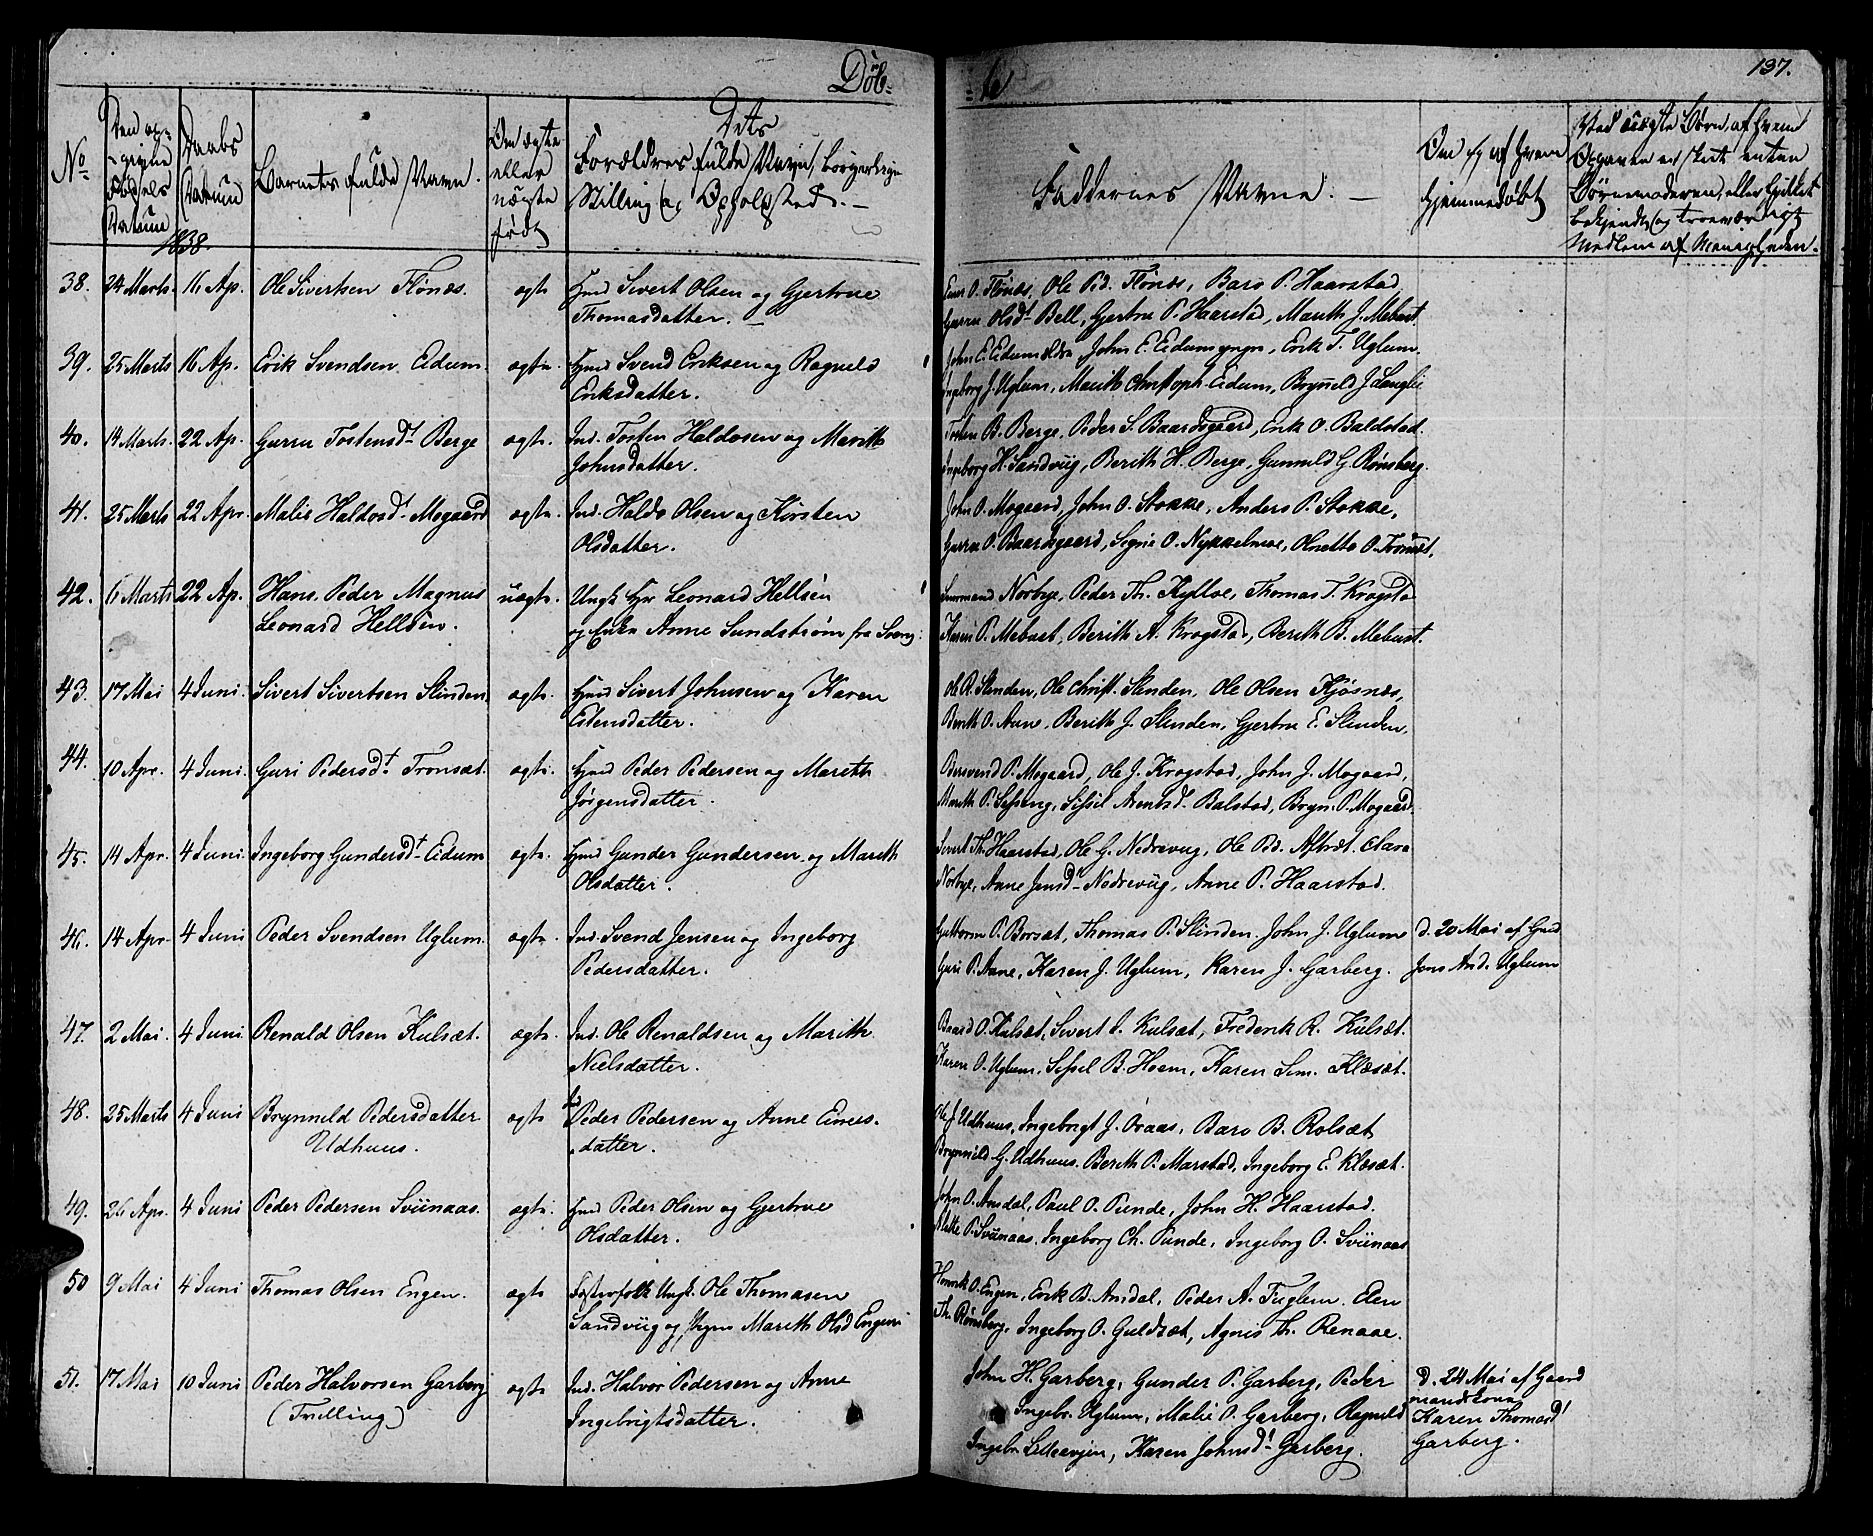 Döb-
te
137.
No
Den op-
givne
Fødsels
Datum
Daabs
Datum
Barnets fulde Navn.
Om ægte
eller
uægte
født
Dets
Forældres fulde Navn, borgerlige
Stilling og Opholdsted. -
Faddernes Navne. -
Om og af hvem
hjemmedøbt
Ved uægte Børn, af hvem
Opgaven er skeet enten
Børnemoderen, eller hvilket
bekjendt og troeværdigt
Medlem af Menigheden.
1838.
38. 24 Marts. 16 Ap. Ole Sivertsen Flönæs. ægte Gmd Sivert Olsen og Gjertrue
Thomasdatter. -
O. Flönæs, Ole Ped. Flönæs, Baro P. Haarstad
Gurru Olsdt Bell, Gjertru P. Haarstad, Marith J. Mebust.
39. 25 Marts 16 Ap. Erik Svendsen Eidum. ægte. Gmd Svend Eriksen og Ragnild
Eriksdatter.
John E. Eidum ældre, John E. Eidum yngre, Erik T. Uglum.
Ingeborg J. Uglum, Marith Christoph. Eidum, Brynild J. Langlie
40. 14 Marts. 22 Ap. Gurru Tostensdt Berge ægte. Ind. Tosten Haldosen og Marith
Johnsdatter.
Tosten B. Berge, Peder S. Baardsgaard, Erik O. Baldstad.
Ingeborg H. Sandviig, Berith H. Berge, Gunnild G. Rønsberg.
41. 25 Marts 22 Apr. Malie Haldosdt Mogaard ægte. Ind. Haldo Olsen og Kirsten
Olsdatter.
John O. Mogaard, John O. Stokke, Anders P. Stokke,
Gurru O. Baardsgaard, Segrie O. Nykkelmoe, Olnette O. Tronsæt.
42. 6 Marts 22 Ap. Hans Peder Magnus
Leonard Hellsén.
uægte. Ungk. Hr Leonard Hellsén
og Enke Anne Sundström fra Sverig:
Norbye, Peder Th. Kylloe, Thomas T. Kragsta
Karen P. Mebust, Berith A. Kragstad, Berith B. Mebust.
43. 17 Mai 4 Juni. Sivert Sivertsen Slinden. ægte. Gmd Sivert Johnsen og Karen
Estensdatter.
Ole R. Slinden, Ole Christ. Slinden, Ole Olsen Kjøsnæs,
Berith O. Aune, Berith J. Slinden, Gjertru E. Slinden,
44. 10 Apr. 4 Juni. Guri Pedersdt Tronsæt. ægte. Gmd Peder Pedersen og Marith
Jörgensdatter.
Bersvend P. Mogaard, Ole J. Kragstad, John J. Mogaard,
Marith P. Sesseng, Sissil Arentsdt Balstad, Bryn. P. Mogaard.
45. 14 Apr. 4 Juni. Ingeborg Gundersdt Eidum ægte. Gmd Gunder Gundersen og Marith
Olsdatter.
Sivert Th. Haarstad, Ole G. Nedreviig, Ole Pd. Aftret. Clara
Norbye, Anne Jensdt Nedreviig, Anne P. Haarstad.
46. 14 Apr. 4 Juni Peder Svendsen Uglum. ægte. Ind. Svend Jensen og Ingeborg
Pedersdatter.
Guttorm P. Borsæt, Thomas P. Slinden. John J. Uglum
Guri P. Aune, Karen J. Uglum, Karen J. Garberg.
d. 20 Mai af Gmd
Jens And. Uglum
47. 2 Mai. 4 Juni. Renald Olsen Kulsæt. ægte. Ind. Ole Renaldsen og Marith.
Nielsdatter.
Baard O. Kulsæt, Sivert S. Kulsæt, Frederik R. Kulsæt.
Karen O. Uglum, Sissel B. Hoem, Karen Sim. Klæsæt.
48. 25 Marts 4 Juni Brynnild Pedersdatter
Udhuus.
ægte Peder Pedersen og Anne Einers-
datter.
Ole J. Udhuus, Ingebrigt J. Oraas, Baro B. Rolsæt
Brynnild G. Udhuus. Berith P. Marstad, Ingeborg E. Klæsæt.
49. 26 Apr. 4 Juni Peder Pedersen Sviinaas. ægte. Gmd Peder Olsen og Gjertrue
Olsdatter.
John O. Amdal, Paul O. Sunde, John H. Haarstad.
P. Sviinaas, Ingeborg Ch. Sunde, Ingeborg O. Sviinaas
50 9 Mai 4 Juni Thomas Olsen Engen. ægte Fæstefolk Ungk. Ole Thomasen
Sandviig og Pigen Marith Olsd Engen
Henrik O. Engen, Erik B. Amdal, Peder A. Fuglem. Elen
Th. Rønsberg, Ingeborg O. Guldsæt, Agnis Th. Renaae.
51. 17 Mai 10 Juni Peder Halvorsen Garberg
(Trilling)
ægte Ind. Halvor Pedersen og Anne
Ingebrigtsdatter.
John H. Garberg, Gunder P. Garberg, Peder
Ingebr. Uglum, Malie O. Garberg, Ragnild
Ingebr Lilleevjen, Karen Johnsdt Garberg.
d. 24 Mai af Gaard
mandskone
Karen Thomasdt
Garberg.